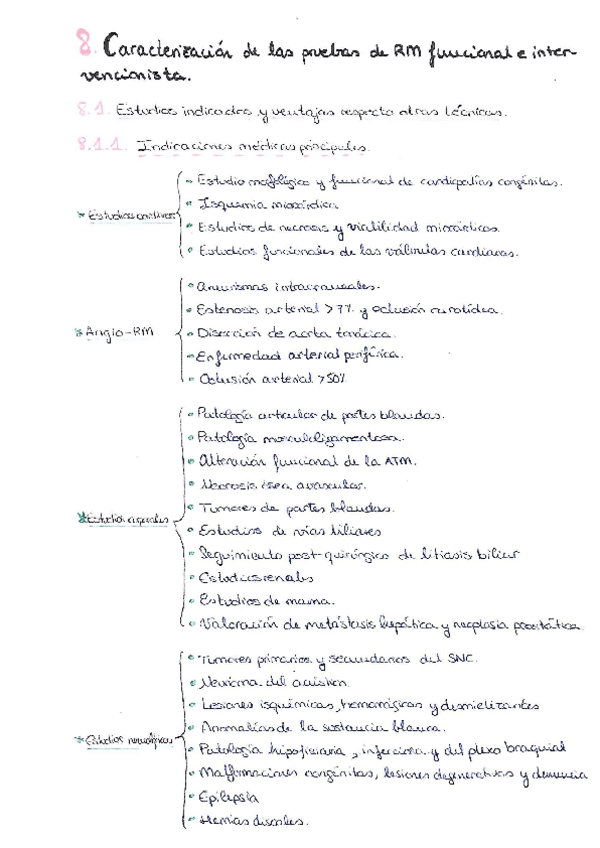 8. Caracterización de las pruebas de RM funcional e inter-
vencionista.
8.1. Estudios indicados y ventajas respecto otras técnicas.
8.1.1. Indicaciones médicas principales.
* Estudios cardíacos
• Estudio morfológico y funcional de cardiopatías congénitas.
• Isquemia miocárdica
• Estudios de necrosis y viabilidad miocárdicas.
• Estudios funcionales de las válvulas cardiacas.
* Angio-RM
• Aneurismas intracraneales.
• Estenosis arterial >7% y oclusión carotídea.
• Disección de aorta torácica.
• Enfermedad arterial periférica.
• Oclusión arterial >50%
* Estudios corporales
• Patología articular de partes blandas.
• Patología musculoligamentosa.
• Alteración funcional de la ATM.
• Necrosis ósea avascular.
• Tumores de partes blandas.
• Estudios de vías biliares
• Seguimiento post-quirúrgico de litiasis biliar
• Estudios renales
• Estudios de mama.
• Valoración de metástasis hepática y neoplasia prostática
* Estudios neurológicos
• Tumores primarios y secundarios del SNC.
• Neurinoma del acústico.
• Lesiones isquémicas, hemorrágicas y desmielizantes
• Anomalías de la sustancia blanca.
• Patología hipofisiaria, infecciosa y del plexo braquial
• Malformaciones congénitas, lesiones degenerativas y demencia
• Epilepsia
• Hernias discales.